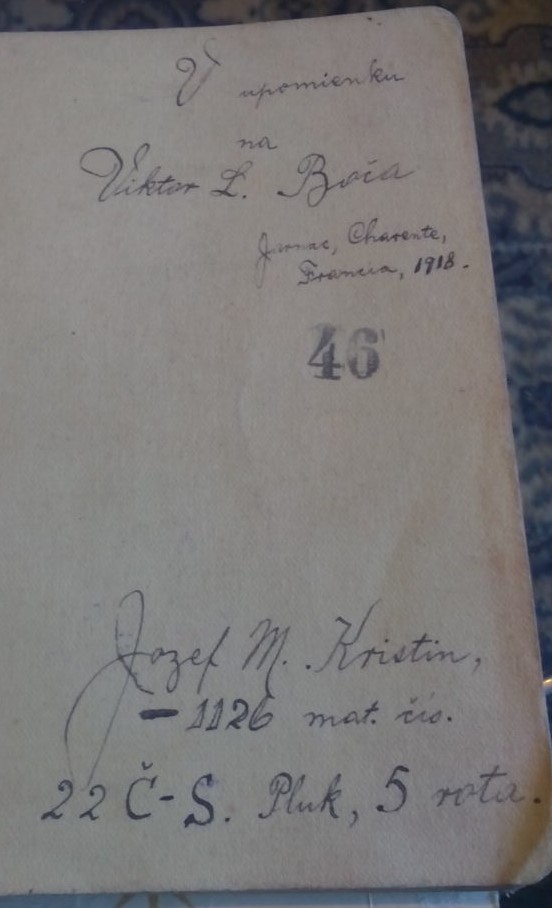 V upomienku
na
Viktor L. Boča
Jarnac, Charente,
Francia, 1918.
46
Jozef M. Kristin,
- 1126 mat. čís.
22 Č-S. Pluk, 5 rota.